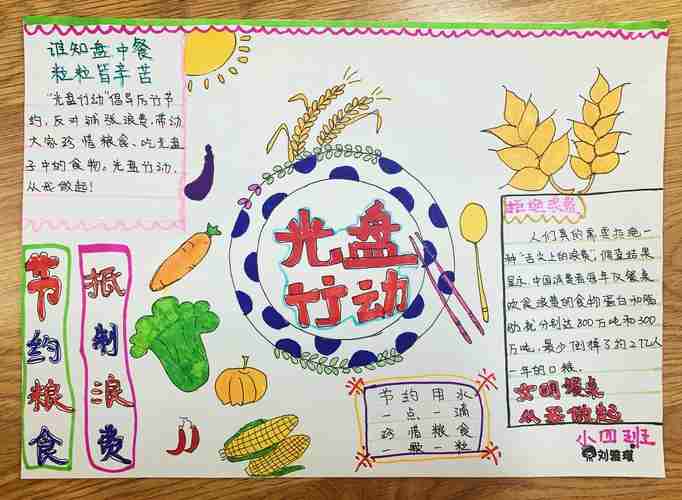 谁知盘中餐
粒粒皆辛苦
“光盘行动”倡导厉行节
约,反对铺张浪费,带动
大家珍惜粮食、吃光盘
子中的食物。光盘行动,
从我做起!
节约粮食
抵制浪费
光盘
行动
拒绝浪费
人们真的需要拒绝一
种“舌尖上的浪费”,调查结果
显示,中国消费者每年仅餐桌
饮食浪费的食物蛋白和脂
肪就分别达800万吨和300
万吨,最少倒掉了约2亿人
一年的口粮。
文明餐桌
从我做起
节约用水
一点一滴
珍惜粮食
一颗一粒
小四班
刘雅瑾